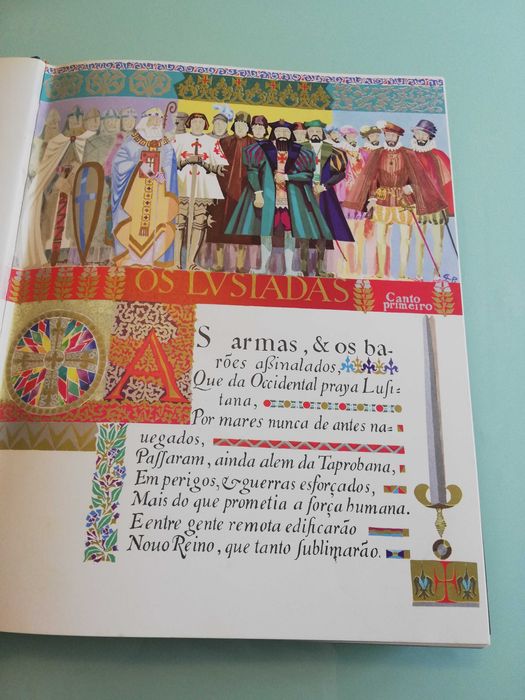 OS LVSIADAS
Canto
primeiro
AS armas, & os ba-
rões aßinalados,
Que da Occidental praya Luſi-
tana,
Por mares nunca de antes na-
uegados,
Paſſaram, ainda alem da Taprobana,
Em perigos, & guerras esforçados,
Mais do que prometia a força humana.
E entre gente remota edificarão
Nouo Reino, que tanto ſublimarão.